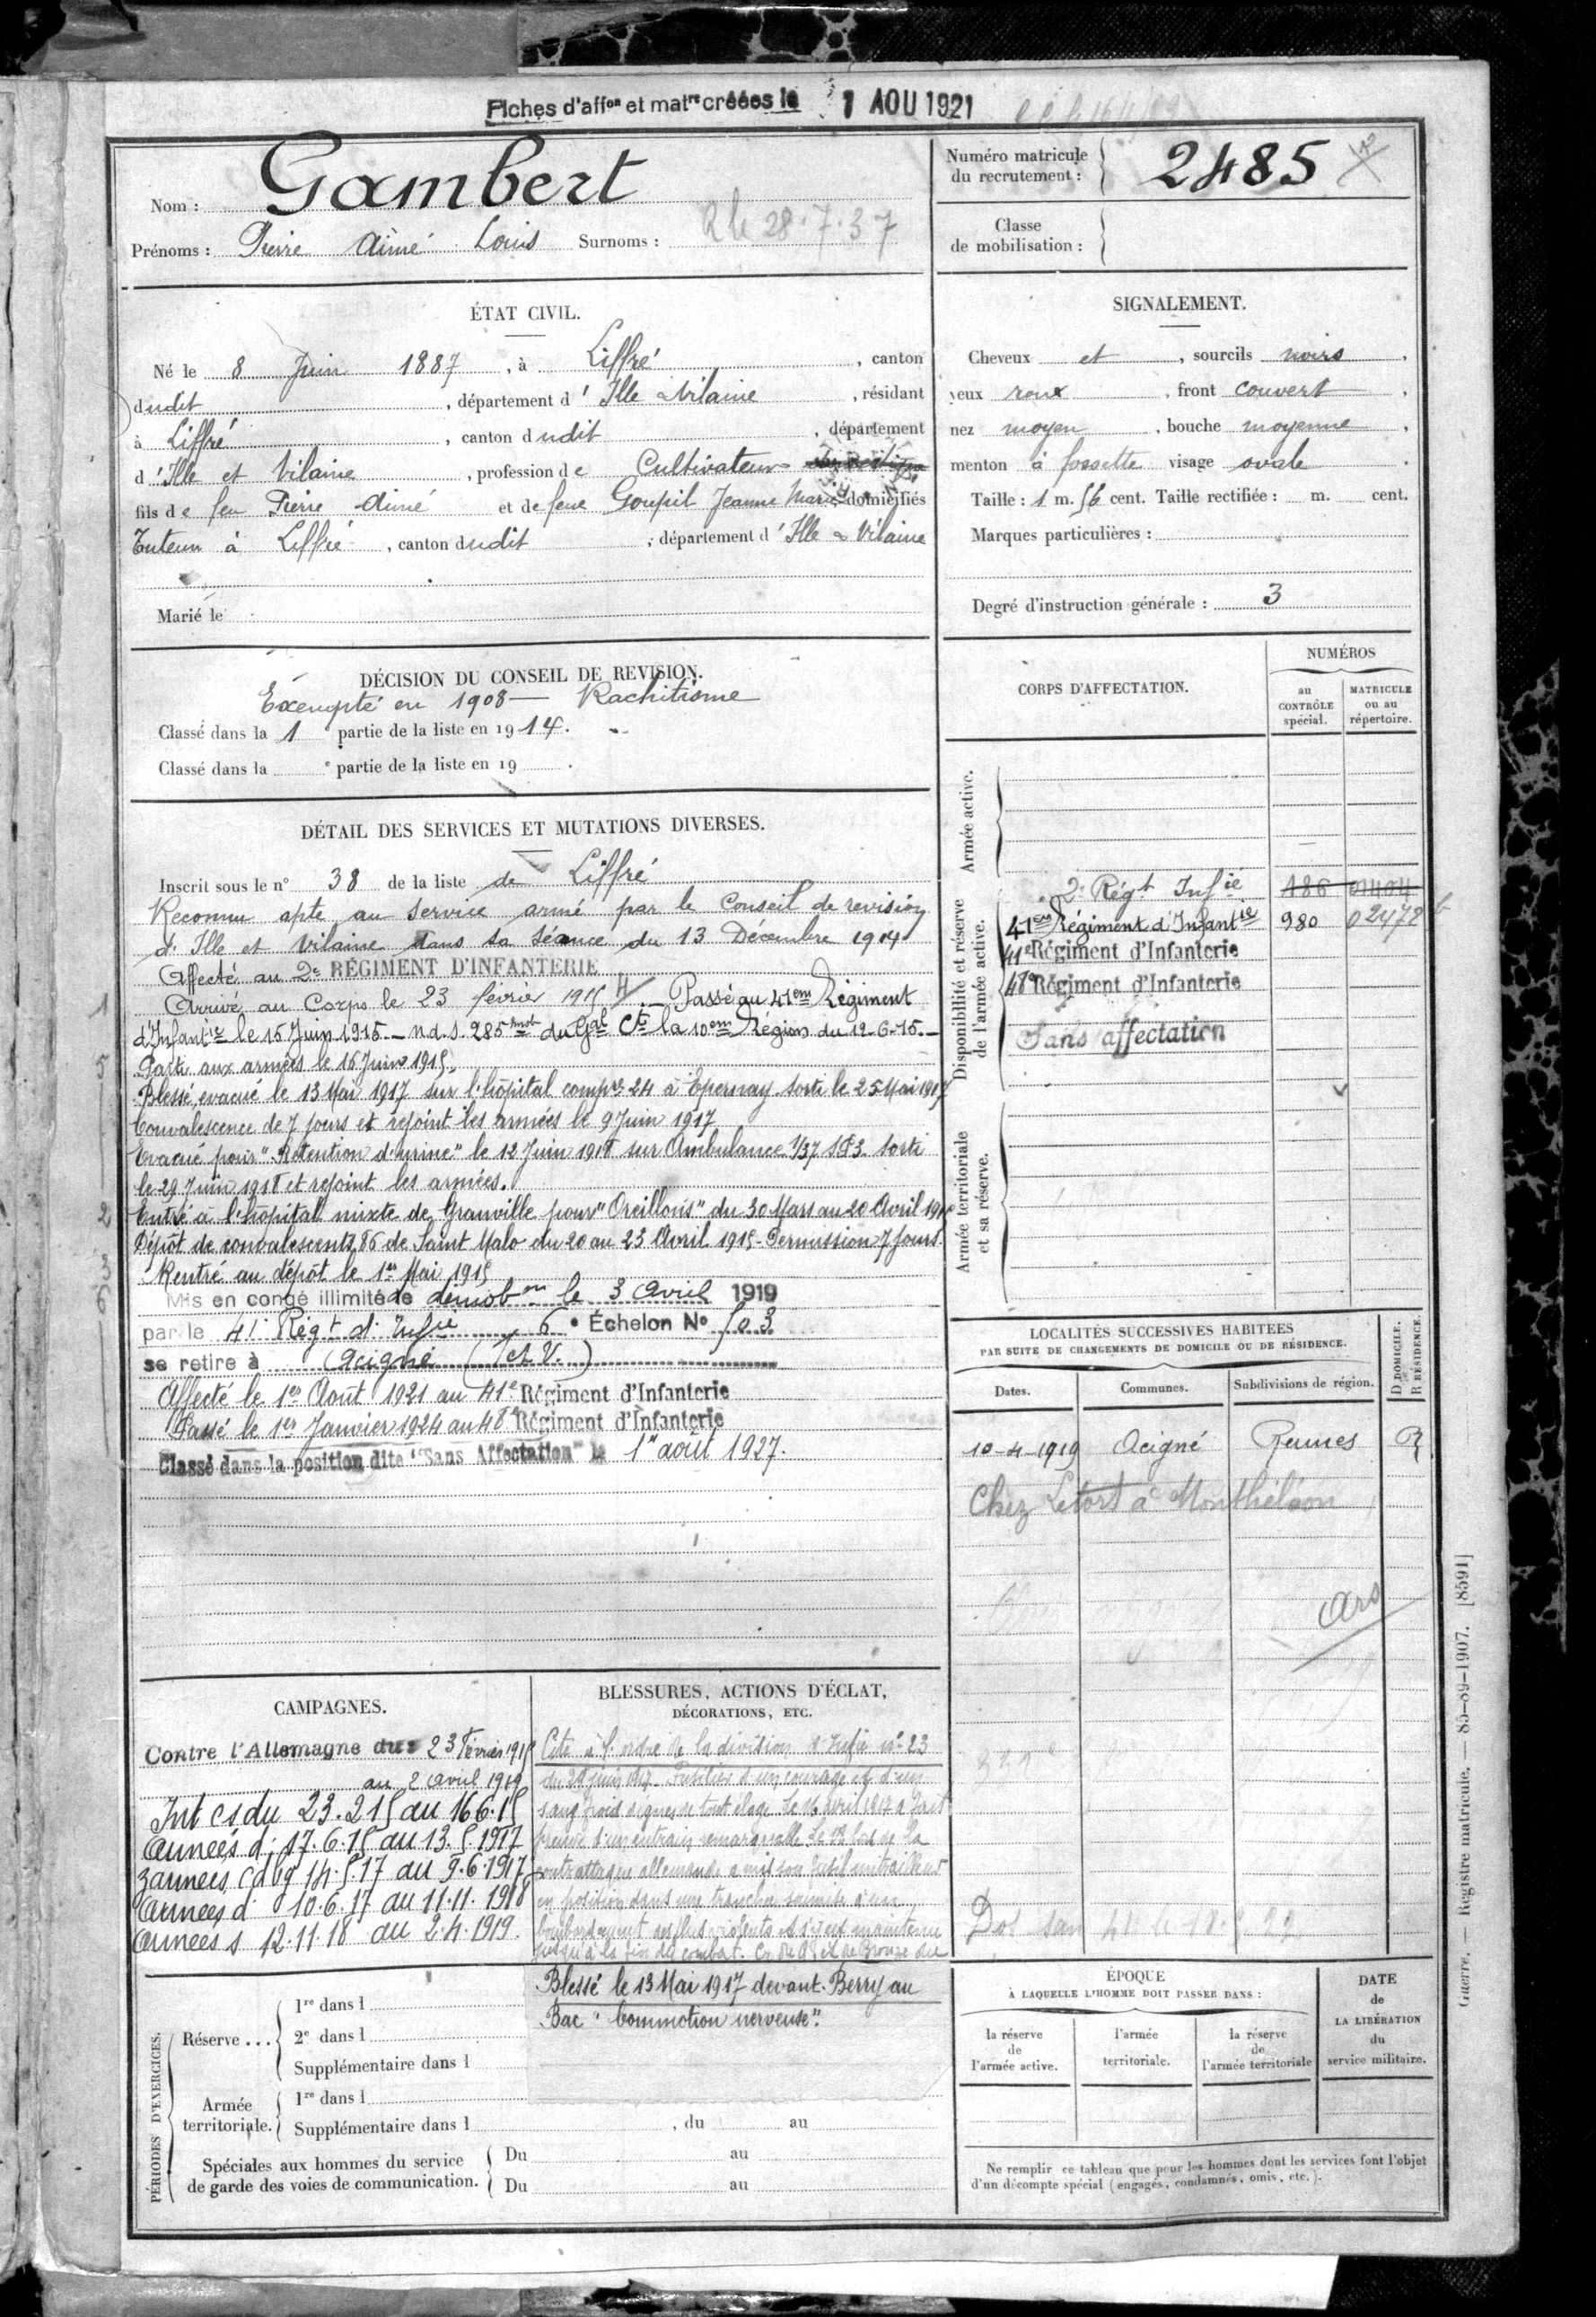 Fiches d'affon et matre créées le 1 AOU 1921
Nom : Gambert
Prénoms : Pierre Aimé Louis Surnoms : R le 28.7.37
Numéro matricule
du recrutement : 2485
Classe
de mobilisation :
ÉTAT CIVIL.
Né le 8 Juin 1887, à Liffré, canton
dudit, département d'Ille & Vilaine, résidant
à Liffré, canton dudit, département
d'Ille et Vilaine, profession de Cultivateur
fils de feu Pierre Aimé et de feue Goupil Jeanne Marie domiciliés
Tuteur à Liffré, canton dudit, département d'Ille & Vilaine
Marié le
SIGNALEMENT.
Cheveux et, sourcils noirs,
yeux roux, front couvert,
nez moyen, bouche moyenne,
menton à fossette visage ovale.
Taille : 1 m. 56 cent. Taille rectifiée : m. cent.
Marques particulières :
Degré d'instruction générale : 3
DÉCISION DU CONSEIL DE REVISION.
Exempté en 1908 — Rachitisme
Classé dans la 1e partie de la liste en 1914.
Classé dans la e partie de la liste en 19 .
DÉTAIL DES SERVICES ET MUTATIONS DIVERSES.
Inscrit sous le n° 38 de la liste de Liffré
Reconnu apte au service armé par le Conseil de revision
d'Ille et Vilaine dans sa séance du 13 Décembre 1914
Affecté au 2e RÉGIMENT D'INFANTERIE
Arrivé au Corps le 23 février 1915 // — Passé au 41em Régiment
d'Infantie le 15 Juin 1915. — n.d.s. 285 mob du Gal Ct la 10em Région du 12-6-15. —
Parti aux armées le 16 Juin 1915.
Blessé, évacué le 13 Mai 1917 sur l'hôpital compre 24 à Epernay. Sorti le 25 Mai 1917
Convalescence de 7 jours et rejoint les armées le 9 Juin 1917
Evacué pour "Rétention d'urine" le 12 Juin 1918 sur Ambulance 1/37 SP3. Sorti
le 29 Juin 1918 et rejoint les armées.
Entré à l'hôpital mixte de Granville pour "Oreillons" du 30 Mars au 20 Avril 1915
Dépôt de convalescents 86 de Saint Malo du 20 au 23 Avril 1915 - Permission 7 jours.
Rentré au dépôt le 1er Mai 1915
Mis en congé illimité de démobon le 3 Avril 1919
par le 41e Régt d'Infie 6e Échelon N° 503
se retire à Acigné (I et V.)
Affecté le 1er Août 1921 au 41e Régiment d'Infanterie
Passé le 1er Janvier 1924 au 48e Régiment d'Infanterie
Classé dans la position dite "Sans Affectation" le 1er août 1927.
1
5
2
3
6
CORPS D'AFFECTATION.
NUMÉROS
au
CONTRÔLE
spécial.
MATRICULE
ou au
répertoire.
Armée active.
Disponibilité et réserve
de l'armée active.
2e Régt Infie 186 01404
41em Régiment d'Infantie 980 02472
41e Régiment d'Infanterie
48e Régiment d'Infanterie
Sans affectation
Armée territoriale
et sa réserve.
LOCALITÉS SUCCESSIVES HABITÉES
PAR SUITE DE CHANGEMENTS DE DOMICILE OU DE RÉSIDENCE.
D DOMICILE.
R RÉSIDENCE.
Dates. Communes. Subdivisions de région.
10-4-1919 Acigné Rennes R
Chez Letort à Monthéleon
Ars
CAMPAGNES.
Contre l'Allemagne du 23 Février 1915
au 2 Avril 1919
Int cs du 23.2.15 au 16.6.15
Armées d: 17.6.15 au 13.5.1917
Z armées cd bg 14.5.17 au 9.6.1917
Armées d 10.6.17 au 11.11.1918
Armées s 12.11.18 au 2.4.1919.
BLESSURES, ACTIONS D'ÉCLAT,
DÉCORATIONS, ETC.
Cité à l'ordre de la division d'Infie n° 23
du 29 juin 1917. Fusilier d'un courage et d'un
sang froid dignes de tout éloge. Le 16 avril 1917 a fait
preuve d'un entrain remarquable. Le 18 lors de la
contrattaque allemande a mis son fusil mitrailleur
en position dans une tranchée soumise à un
bombardement des plus violents et s'y est maintenu
jusqu'à la fin du combat. Cr de G. et de Bronze
Blessé le 13 Mai 1917 devant Berry au
Bac "Commotion nerveuse".
PÉRIODES D'EXERCICES.
Réserve ...
1re dans l
2e dans l
Supplémentaire dans l
Armée
territoriale.
1re dans l
Supplémentaire dans l , du au
Spéciales aux hommes du service
de garde des voies de communication.
Du au
Du au
ÉPOQUE
À LAQUELLE L'HOMME DOIT PASSER DANS :
la réserve
de
l'armée active.
l'armée
territoriale.
la réserve
de
l'armée territoriale
DATE
de
LA LIBÉRATION
du
service militaire.
Ne remplir ce tableau que pour les hommes dont les services font l'objet
d'un décompte spécial (engagés, condamnés, omis, etc.).
Guerre. — Registre matricule. — 85-89-1907. [8591]